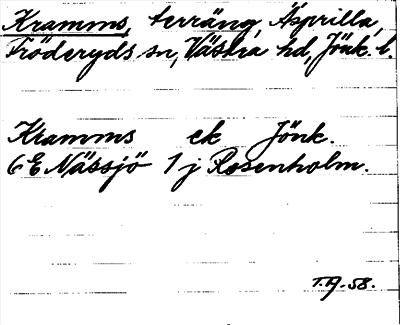 Kramms, terräng, Äsprilla,
Fröderyds sn, Västra hd, Jönk. l.
Kramms ek Jönk.
6E Nässjö 1 j Rosenholm.
T.A-58.